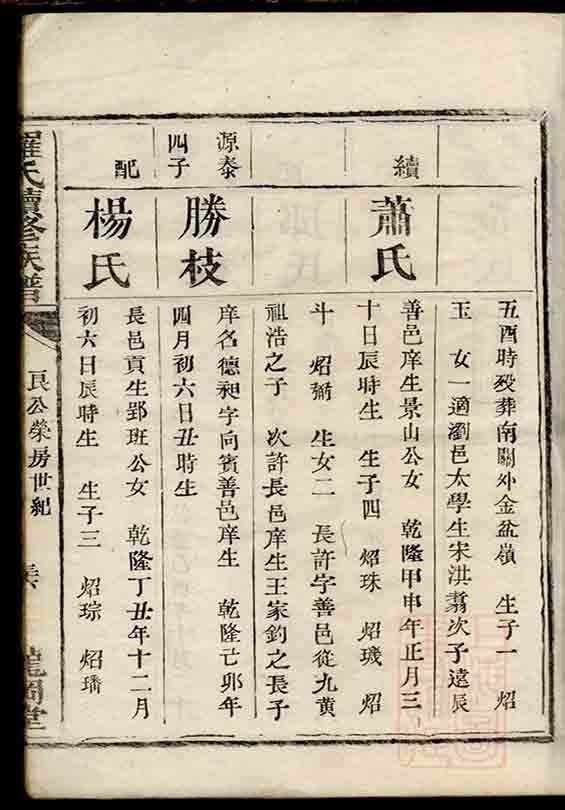 五酉時歿葬南關外金盆嶺　生子一　炤
玉　女一適瀏邑太學生宋淇翥次子遠辰
續
蕭氏
善邑庠生景山公女　乾隆甲申年正月三
十日辰時生　生子四　炤珠　炤璣　炤
斗　炤獬　生女二　長許字善邑從九黃
祖浩之子　次許長邑庠生王家鈞之長子
源泰
四子
勝枝
庠名德昶字向賓善邑庠生　乾隆己卯年
四月初六日丑時生
配
楊氏
長邑貢生郢班公女　乾隆丁丑年十二月
初六日辰時生　生子三　炤琮　炤璠
羅氏續修族譜
良公榮房世紀
龍岡堂